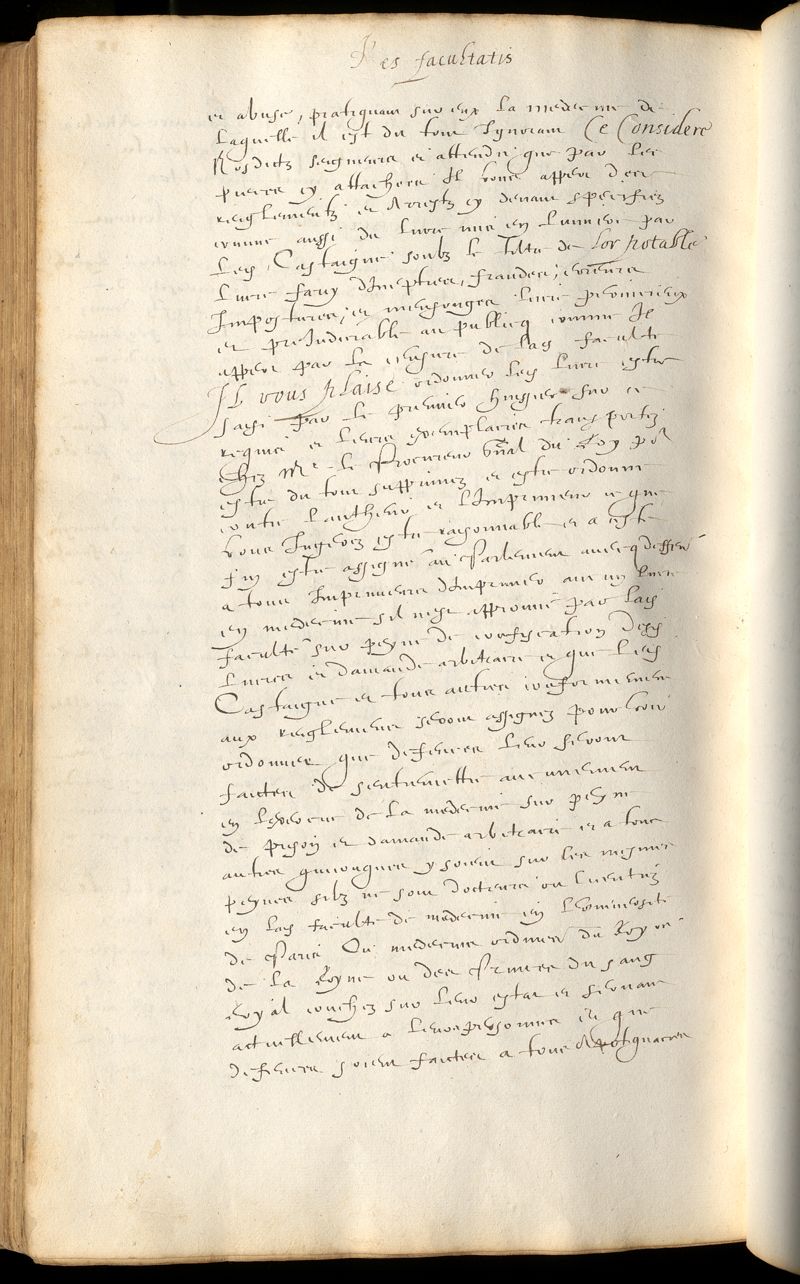 Res facultatis
et abuse, pratiquant sur eux la medecine de
laquelle il est du tout Ignorant Ce Considere
Nosdictz seigneurs et attendu que par les
pieces cy attachees Il vous appert desd
reiglementz et Arrestz cy devant specifiez
comme aussi du livre mis en lumiere par
led Castaigne soubz le tiltre de Lor potable
livre farcy dInepties, fraudes, erreurs
Impostures, et mensonges livre pernicieux
et preIudiciable au publicq comme Il
appert par la censure de lad faculté
Il vous plaise ordonner led livre estre
saisi par le premier huissier sur ce
requis et leurs exemplaires transportez
chez Mr le Procureur gnal du Roy por
estre du tout supprimez et estre ordonné
contre lautheur et lImprimeur ce que
vous Jugerez estre raisonnable et a ceste
fin estre assigné au Parlement avecq deffen
a tous Imprimeurs dImprimer aucun livre
en medecine sil nest approuvé par lad
faculté sur peyne de confiscation desd
livres et damande arbitraire et que led
Castaigne et tous autres
aux reiglements seront assignez pour veoir
ordonner que defences leur seront
faictes de sentremettre aucunement
en lexercice de la medecine sur peyne
de prison et damande arbitraire et a tous
autres quiconques y soient sur les mesmes
peynes silz ne sont docteurs ou licentiez
en lad faculté de medecine en lUniversité
de Paris Ou medecins ordinres du Roy
de la Royne ou des Princes du sang
Royal couchez sur leur estat et servans
actuellement a leurs personnes et que
defences soient faictes a tous Apotiquaires